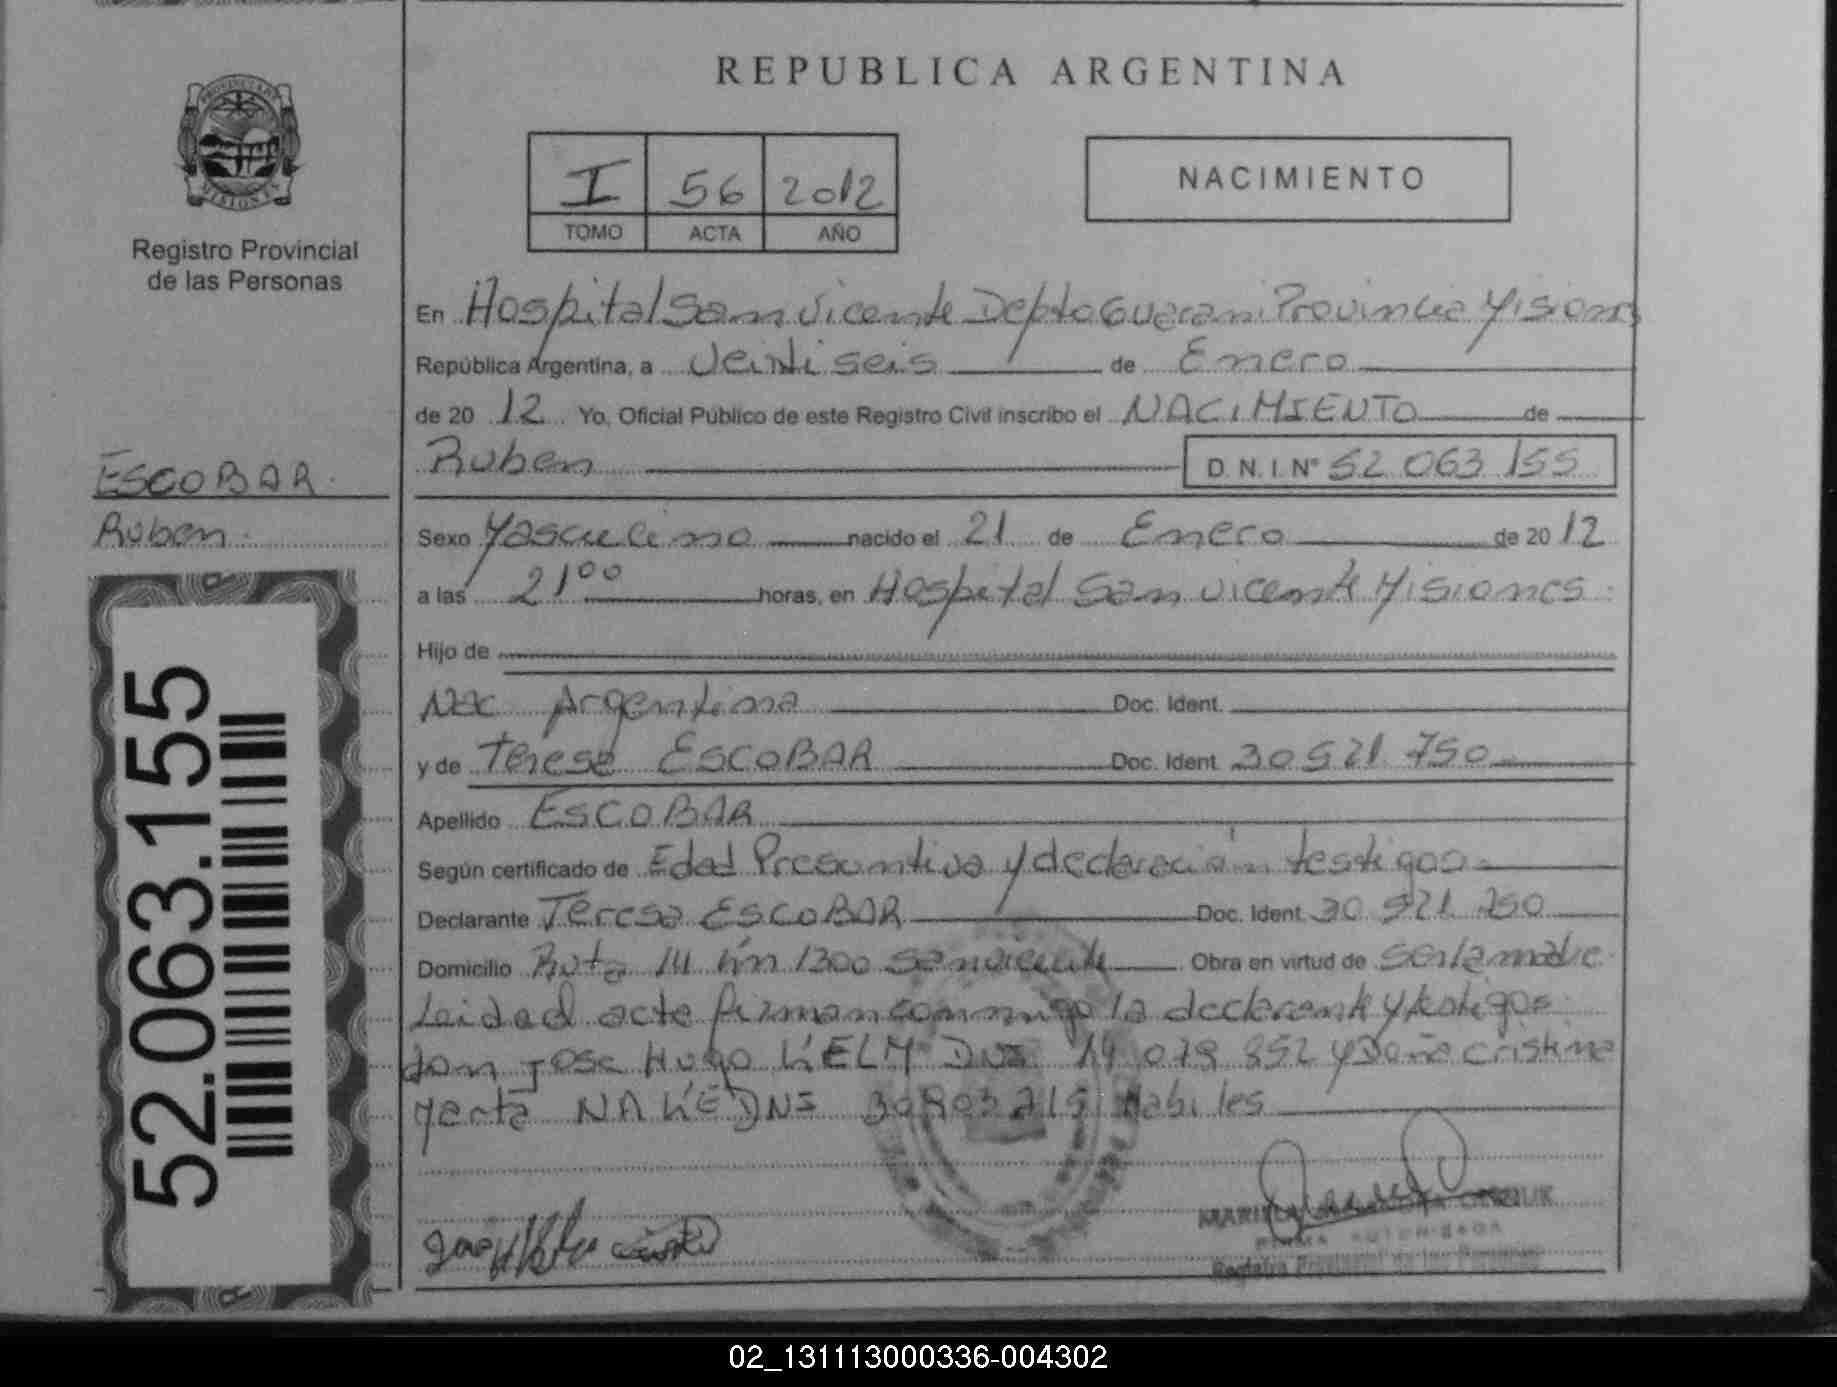 REPUBLICA ARGENTINA
I 56 2012
TOMO ACTA AÑO
NACIMIENTO
Registro Provincial
de las Personas
ESCOBAR
Ruben
52.063.155
En Hospital San Vicente Depto Guarani Provincia Misiones
República Argentina, a Veintiseis de Enero
de 20 12 Yo, Oficial Público de este Registro Civil inscribo el NACIMIENTO de
Ruben D.N.I. Nº 52 063 155
Sexo Masculino nacido el 21 de Enero de 20 12
a las 21 00 horas, en Hospital San Vicente Misiones
Hijo de
Nac Argentina Doc. Ident.
y de Teresa ESCOBAR Doc. Ident. 30 521 750
Apellido ESCOBAR
Según certificado de Edad Presuntiva y declaración testigos
Declarante Teresa ESCOBAR Doc. Ident. 30 521 750
Domicilio Ruta 14 km 1300 San Vicente Obra en virtud de ser la madre
Leida el acta firman conmigo la declarante y testigos
don Jose Hugo KIELM DNI 14 079 852 y Doña Cristina
Marta DNI Habiles
Registro Provincial de las Personas
02_131113000336-004302